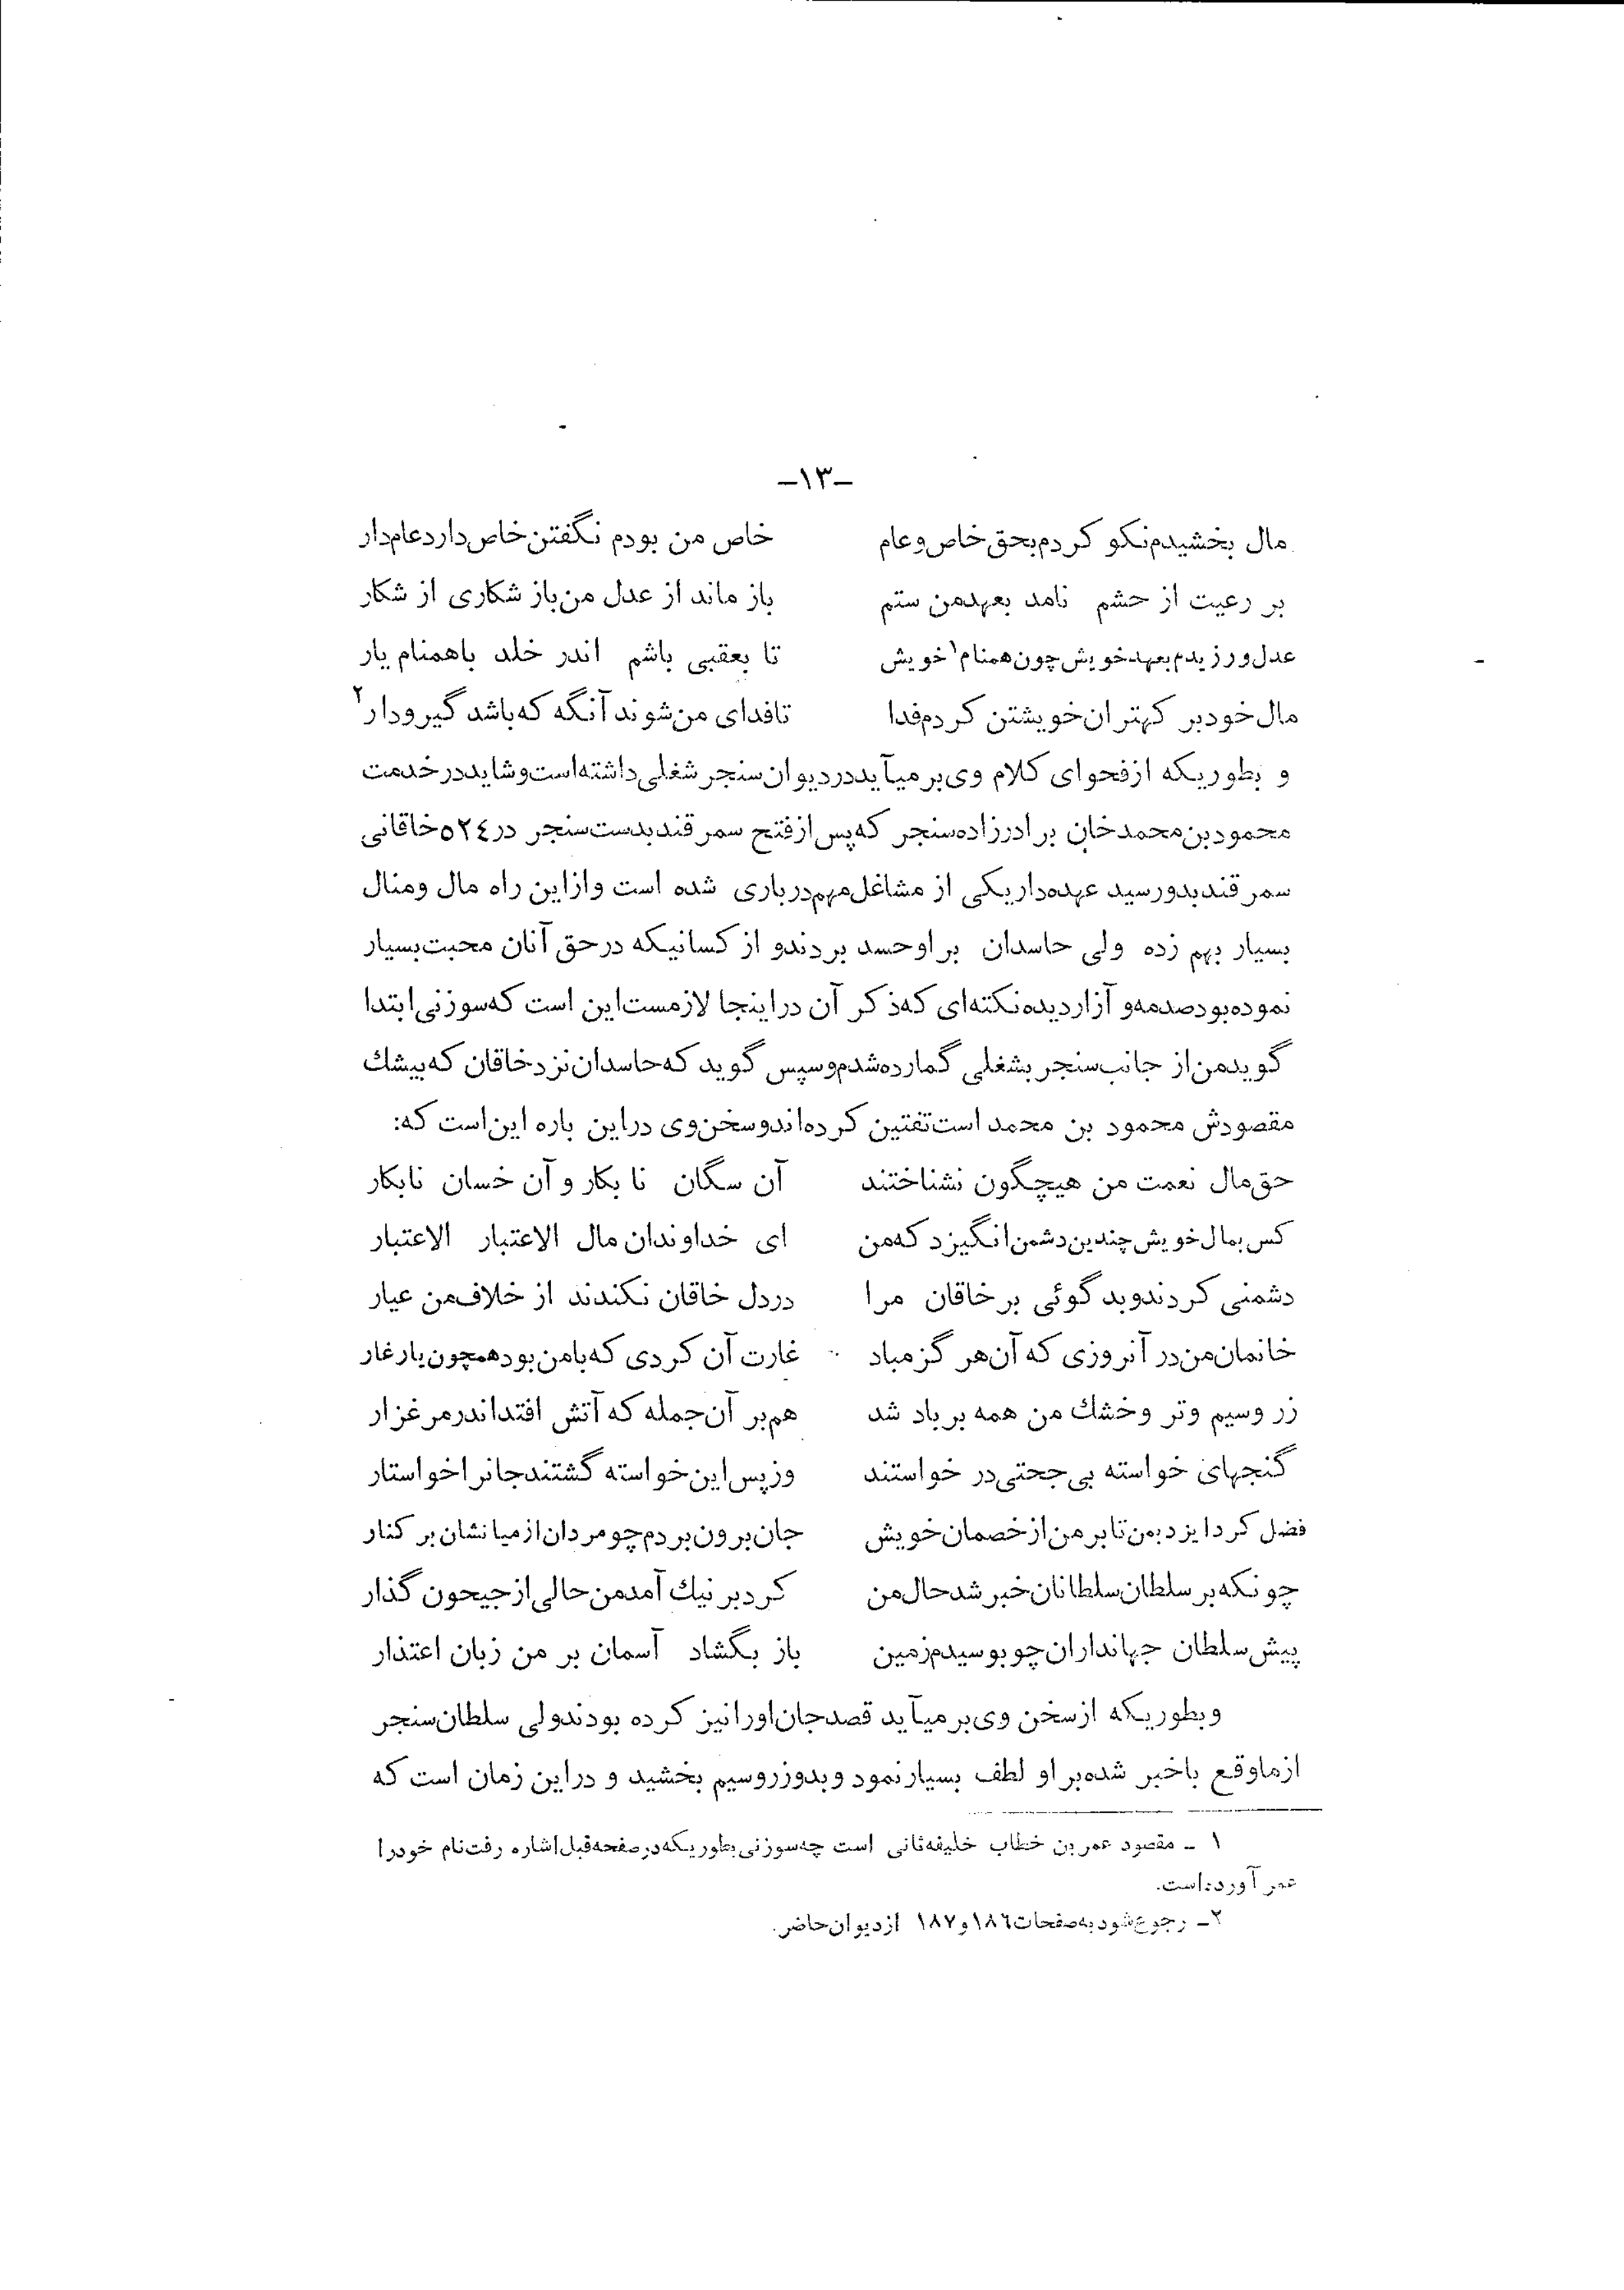 -۱۳-
مال بخشیدم نکو کردم بحق خاص و عام خاص من بودم نگفتن خاص دارد عام دار
بر رعیت از حشم نامد بعهد من ستم باز ماند از عدل من باز شکاری از شکار
عدل ورزیدم بعهد خویش چون همنام۱ خویش تا بعقبی باشم اندر خلد باهمنام یار
مال خود بر کهتران خویشتن کردم فدا تا فدای من شوند آنگه که باشد گیرودار۲
و بطوریکه از فحوای کلام وی بر میآید در دیوان سنجر شغلی داشته است و شاید در خدمت
محمود بن محمد خان برادرزاده سنجر که پس از فتح سمرقند بدست سنجر در ۵۲٤ خاقانی
سمرقند بدو رسید عهده دار یکی از مشاغل مهم درباری شده است و از این راه مال ومنال
بسیار بهم زده ولی حاسدان بر او حسد بردند و از کسانیکه در حق آنان محبت بسیار
نموده بود صدمه و آزار دیده نکته ای که ذکر آن در اینجا لازمست این است که سوزنی ابتدا
گوید من از جانب سنجر بشغلی گمارده شدم و سپس گوید که حاسدان نزد خاقان که بیشك
مقصودش محمود بن محمد است تفتین کرده اند و سخن وی در این باره این است که:
حق مال نعمت من هیچگون نشناختند آن سگان نابکار و آن خسان نابکار
کس بمال خویش چندین دشمن انگیزد که من ای خداوندان مال الاعتبار الاعتبار
دشمنی کردند و بد گوئی بر خاقان مرا در دل خاقان نکندند از خلاف من عیار
خانمان من در آنروزی که آن هرگز مباد غارت آن کردی که با من بود همچون یار غار
زر وسیم وتر وخشك من همه بر باد شد هم بر آن جمله که آتش افتد اندر مرغزار
گنجهای خواسته بی حجتی در خواستند وز پس این خواسته گشتند جانرا خواستار
فضل کرد ایزد بمن تا بر من از خصمان خویش جان برون بردم چو مردان از میانشان بر کنار
چونکه بر سلطان سلطانان خبر شد حال من کرد بر نیك آمد من حالی از جیحون گذار
پیش سلطان جهانداران چو بوسیدم زمین باز بگشاد آسمان بر من زبان اعتذار
و بطوریکه از سخن وی بر میآید قصد جان او را نیز کرده بودند ولی سلطان سنجر
از ماوقع باخبر شده بر او لطف بسیار نمود و بدو زر وسیم بخشید و در این زمان است که
۱ ـ مقصود عمر بن خطاب خلیفه ثانی است چه سوزنی بطوریکه در صفحه قبل اشاره رفت نام خود را
عمر آورده است.
۲ـ رجوع شود به صفحات ۱۸٦ و ۱۸۷ از دیوان حاضر.